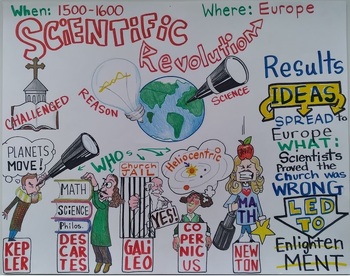 When: 1500-1600
Where: Europe
SCiENTiFiC
Revolution
CHALLENGED
REASON
SCIENCE
Results
IDEAS
SPREAD TO
Europe
WHAT:
Scientists
Proved the
Church was
WRONG
LED
TO
Enlighten
MENT
PLANETS
MOVE!
WHO
MATH
SCIENCE
Philos.
Church
JAIL
YES!
Heliocentric
MATH
KEP
LER
DES
CAR
TES
GALI
LEO
CO
PER
NIC
US
NEW
TON